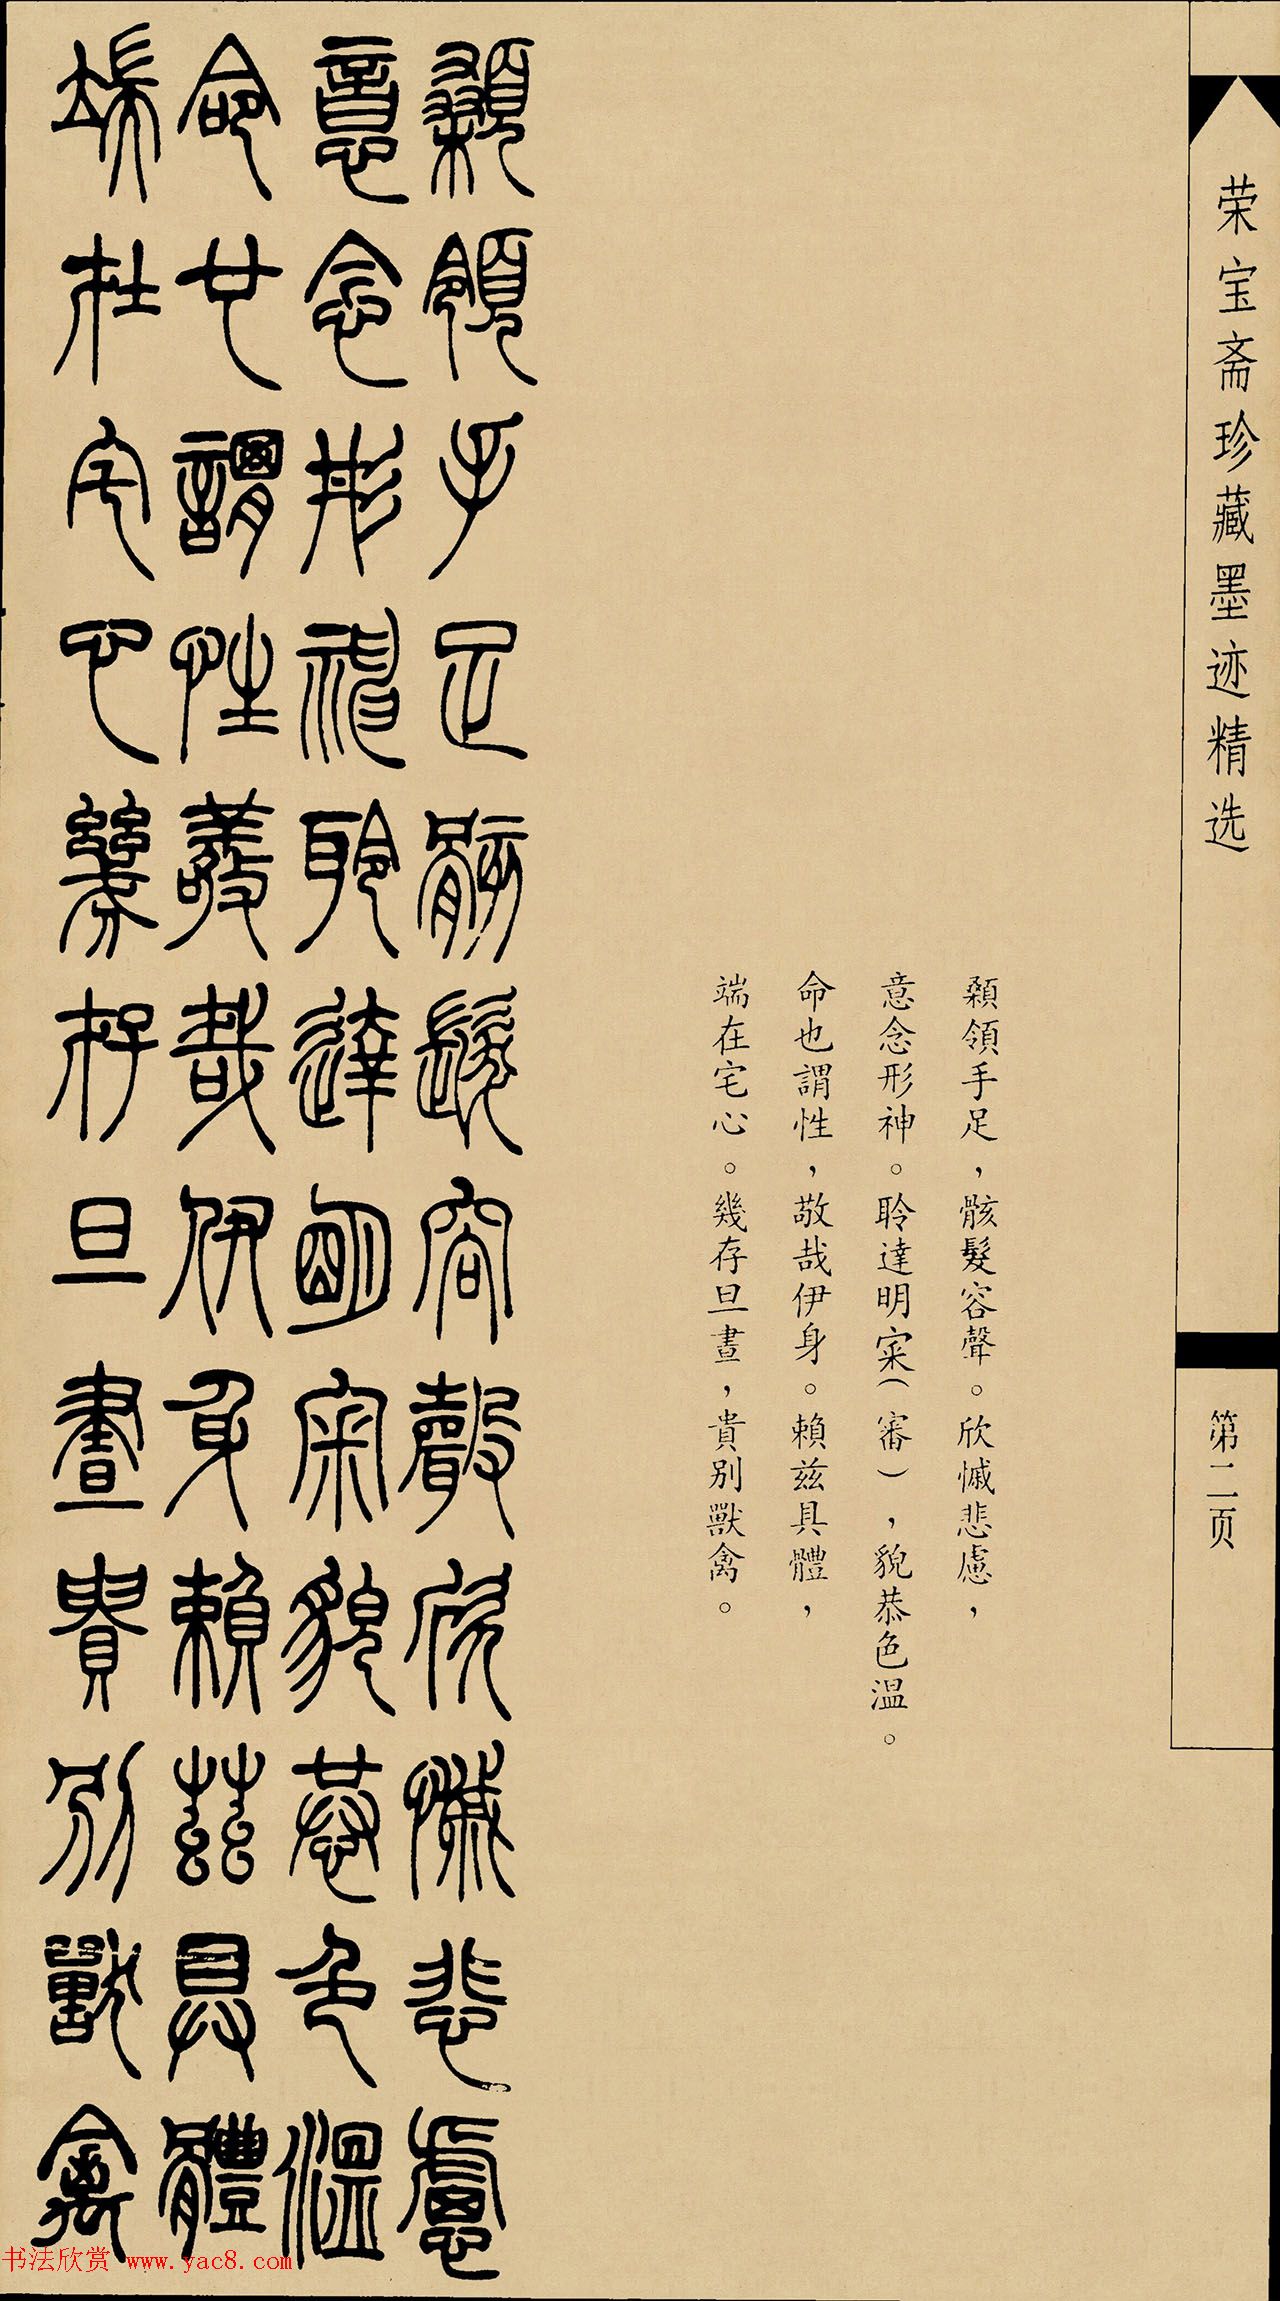 荣宝斋珍藏墨迹精选
第二页
顙領手足，骸髮容聲。欣慽悲慮，
意念形神。聆達明寀（審），貌恭色温。
命也謂性，敬哉伊身。賴兹具體，
端在宅心。幾存旦晝，貴别獸禽。
顙領手足骸髮容聲欣慽悲慮
意念形神聆達明寀貌恭色温
命也謂性敬哉伊身賴兹具體
端在宅心幾存旦晝貴别獸禽
书法欣赏 www.yac8.com